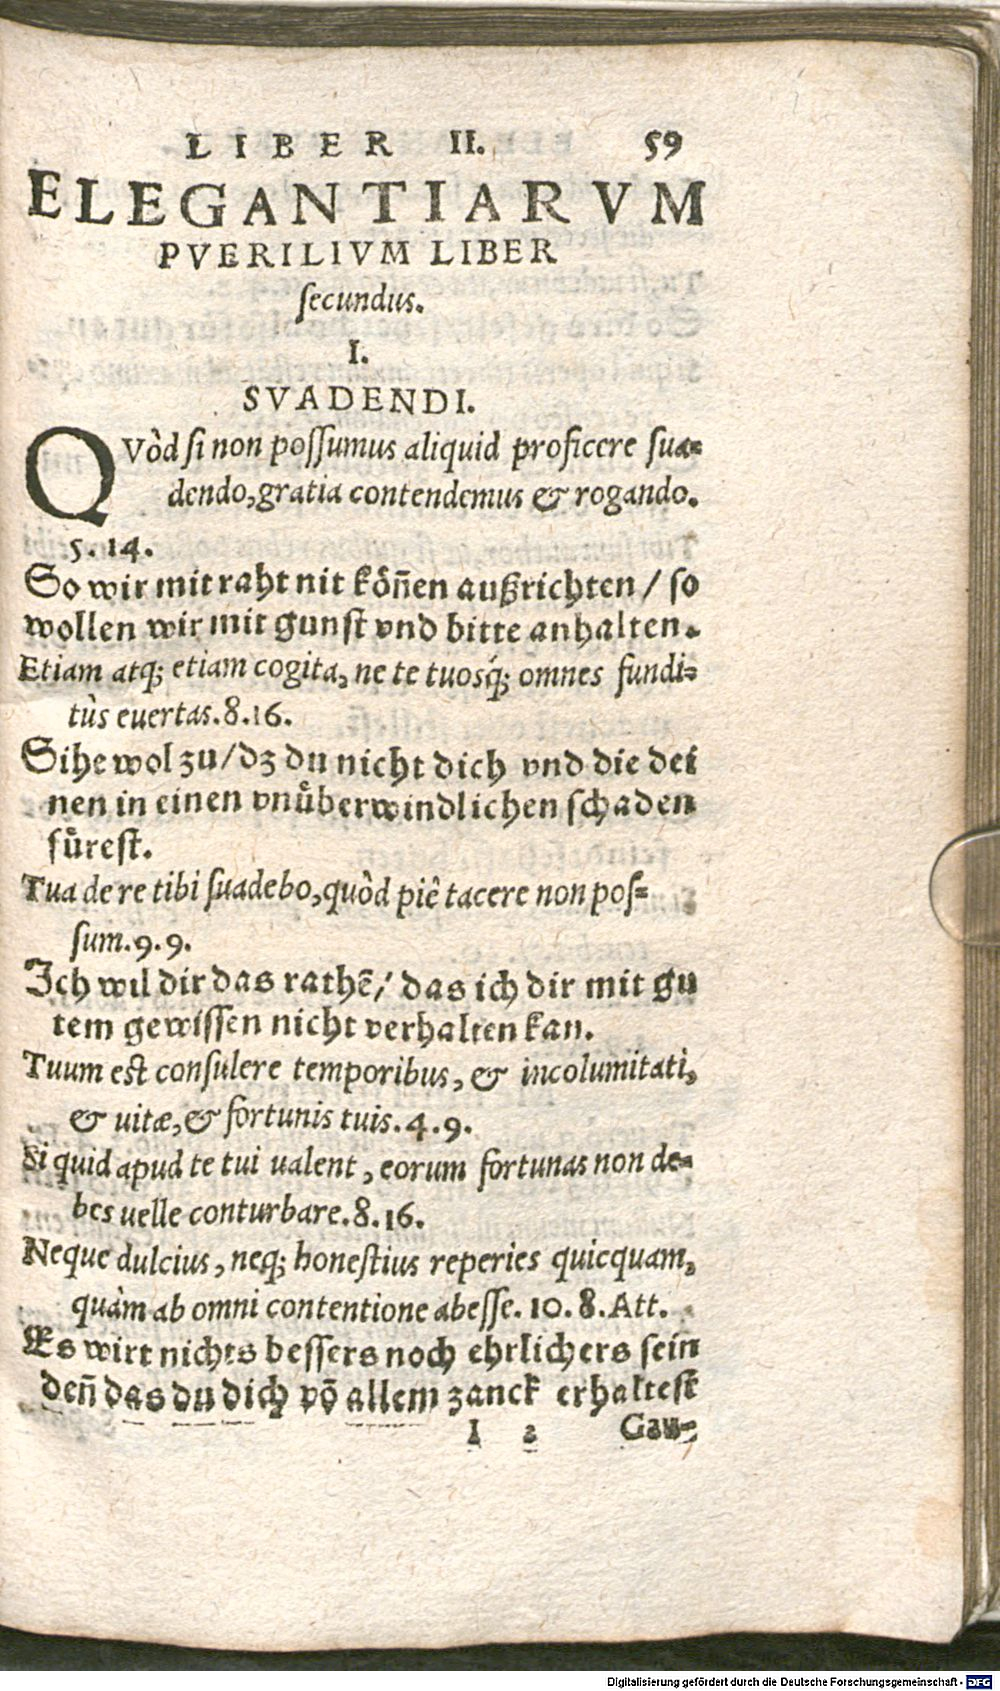 LIBER II. 59
ELEGANTIARVM
PVERILIVM LIBER
secundus.
I.
SVADENDI.
QVòd si non possumus aliquid proficere sua-
dendo, gratia contendemus & rogando.
5. 14.
So wir mit raht nit köñen außrichten / so
wollen wir mit gunst vnd bitte anhalten.
Etiam atq; etiam cogita, ne te tuosq́; omnes fundi-
tùs euertas. 8. 16.
Sihe wol zu / dz du nicht dich vnd die dei
nen in einen vnüberwindlichen schaden
fürest.
Tua de re tibi suadebo, quòd piè tacere non pos-
sum. 9. 9.
Ich wil dir das rathē / das ich dir mit gu
tem gewissen nicht verhalten kan.
Tuum est consulere temporibus, & incolumitati,
& uitæ, & fortunis tuis. 4. 9.
Si quid apud te tui ualent, eorum fortunas non de-
bes uelle conturbare. 8. 16.
Neque dulcius, neq; honestius reperies quicquam,
quàm ab omni contentione abesse. 10. 8. Att.
Es wirt nichts bessers noch ehrlichers sein
deñ das du dich võ allem zanck erhaltest
I 2 Gau-
Digitalisierung gefördert durch die Deutsche Forschungsgemeinschaft - DFG